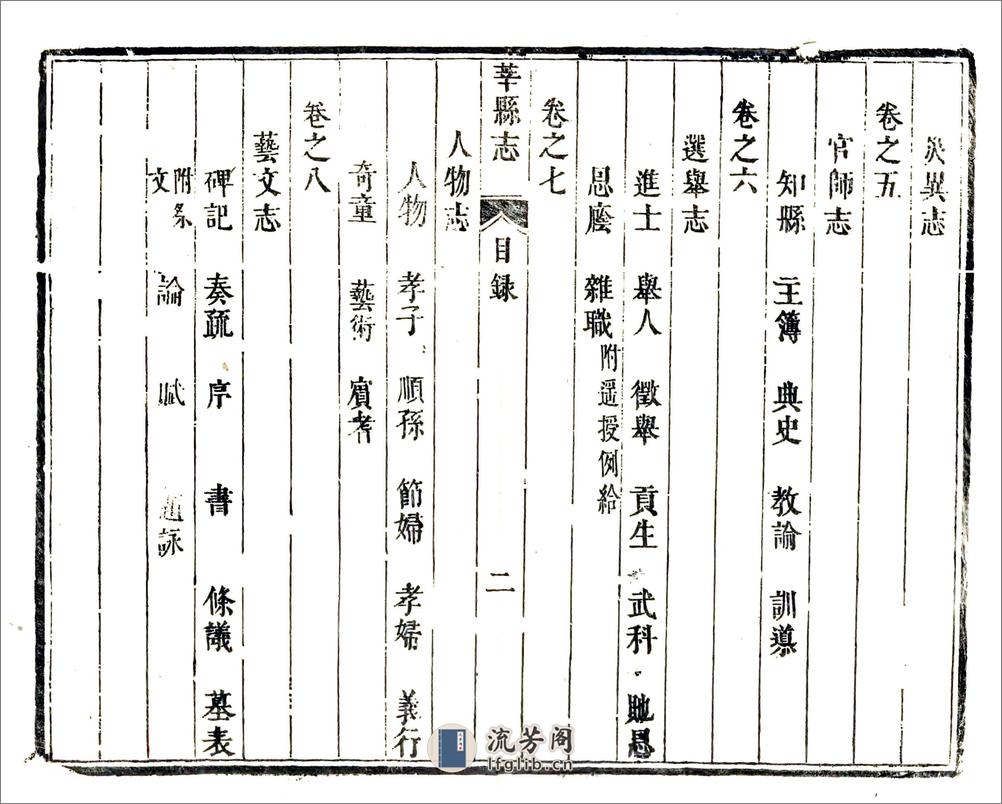 災異志
卷之五
官師志
知縣 主簿 典史 教諭 訓導
卷之六
選舉志
進士 舉人 徵舉 貢生 武科 貤恩
恩廕 雜職 附遥授例給
卷之七
莘縣志 目録 二
人物志
人物 孝子 順孫 節婦 孝婦 義行
奇童 藝術 賓耆
卷之八
藝文志
碑記 奏疏 序 書 條議 墓表
附祭文 論 賦 題詠
流芳阁
lfglib.cn